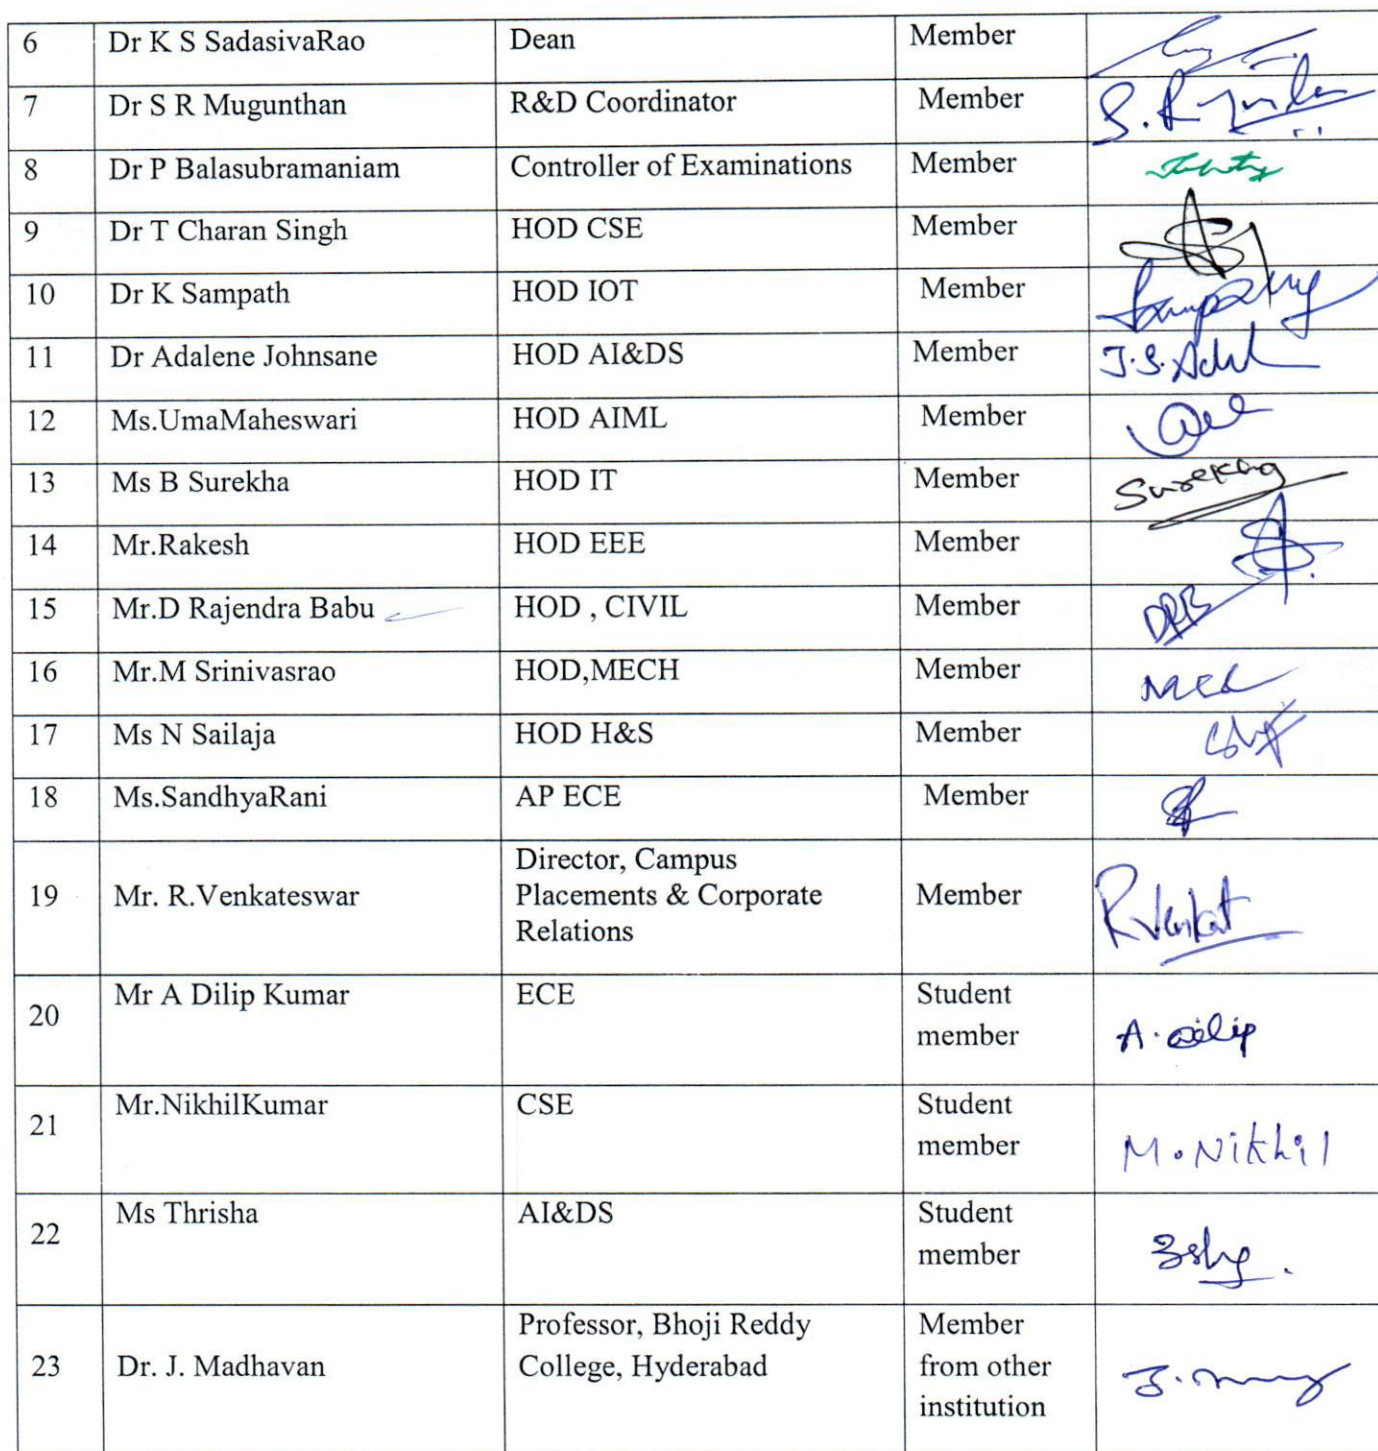 6 Dr K S SadasivaRao Dean Member
7 Dr S R Mugunthan R&D Coordinator Member
8 Dr P Balasubramaniam Controller of Examinations Member
9 Dr T Charan Singh HOD CSE Member
10 Dr K Sampath HOD IOT Member
11 Dr Adalene Johnsane HOD AI&DS Member
12 Ms.UmaMaheswari HOD AIML Member
13 Ms B Surekha HOD IT Member
14 Mr.Rakesh HOD EEE Member
15 Mr.D Rajendra Babu HOD , CIVIL Member DRB
16 Mr.M Srinivasrao HOD,MECH Member
17 Ms N Sailaja HOD H&S Member
18 Ms.SandhyaRani AP ECE Member
Director, Campus
19 Mr. R.Venkateswar Placements & Corporate Member R Venkat
Relations
20 Mr A Dilip Kumar ECE Student
member A. Dilip
21 Mr.NikhilKumar CSE Student
member M. Nikhil
22 Ms Thrisha AI&DS Student
member
Professor, Bhoji Reddy Member
23 Dr. J. Madhavan College, Hyderabad from other
institution